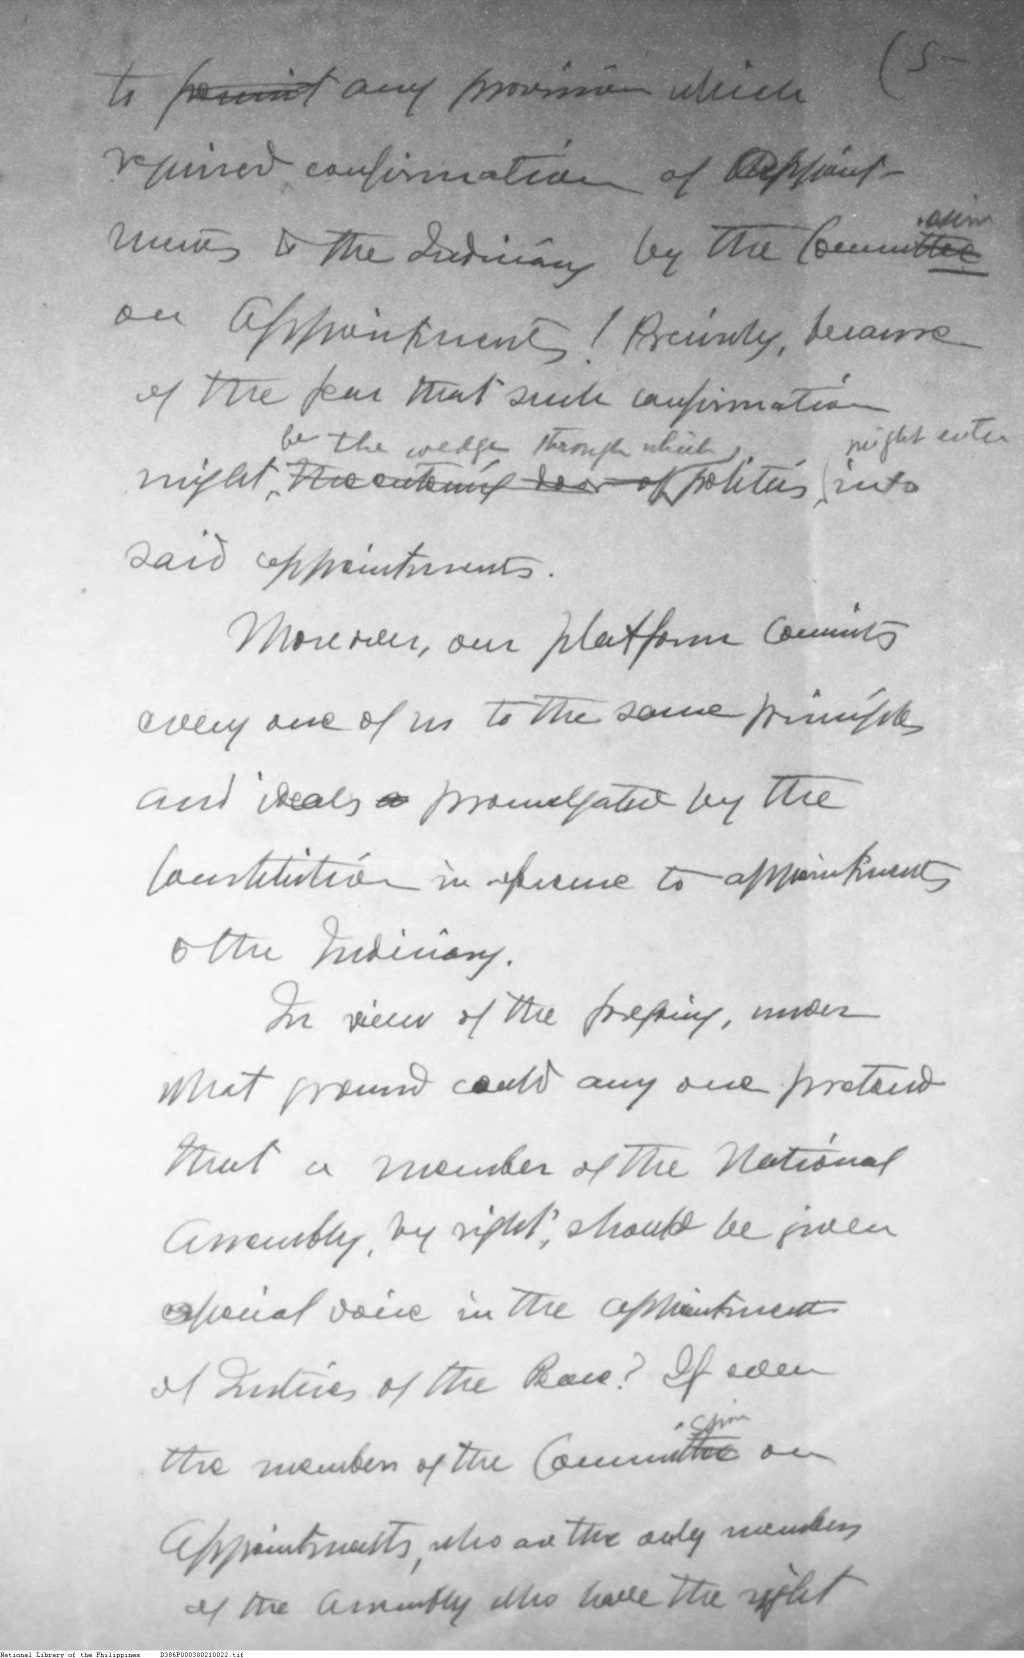 (5-
to permit any provision which
required confirmation of Appoint-
ments to the Judiciary by the Committee ssion
on Appointments! Precisely, because
of the fear that such confirmation
be the wedge through which might enter
might, the entering door of politics, into
said appointments.
Moreover, our platform commits
every one of us to the same principles
and ideals promulgated by the
Constitution in reference to appointments
to the Judiciary.
In view of the foregoing, under
what ground could any one pretend
that a member of the National
Assembly, by right, should be given
especial voice in the appointments
of Justices of the Peace? If even
ssion
the members of the Committee on
Appointments, who are the only members
of the Assembly who have the right
National Library of the Philippines D386P000300210022.tif